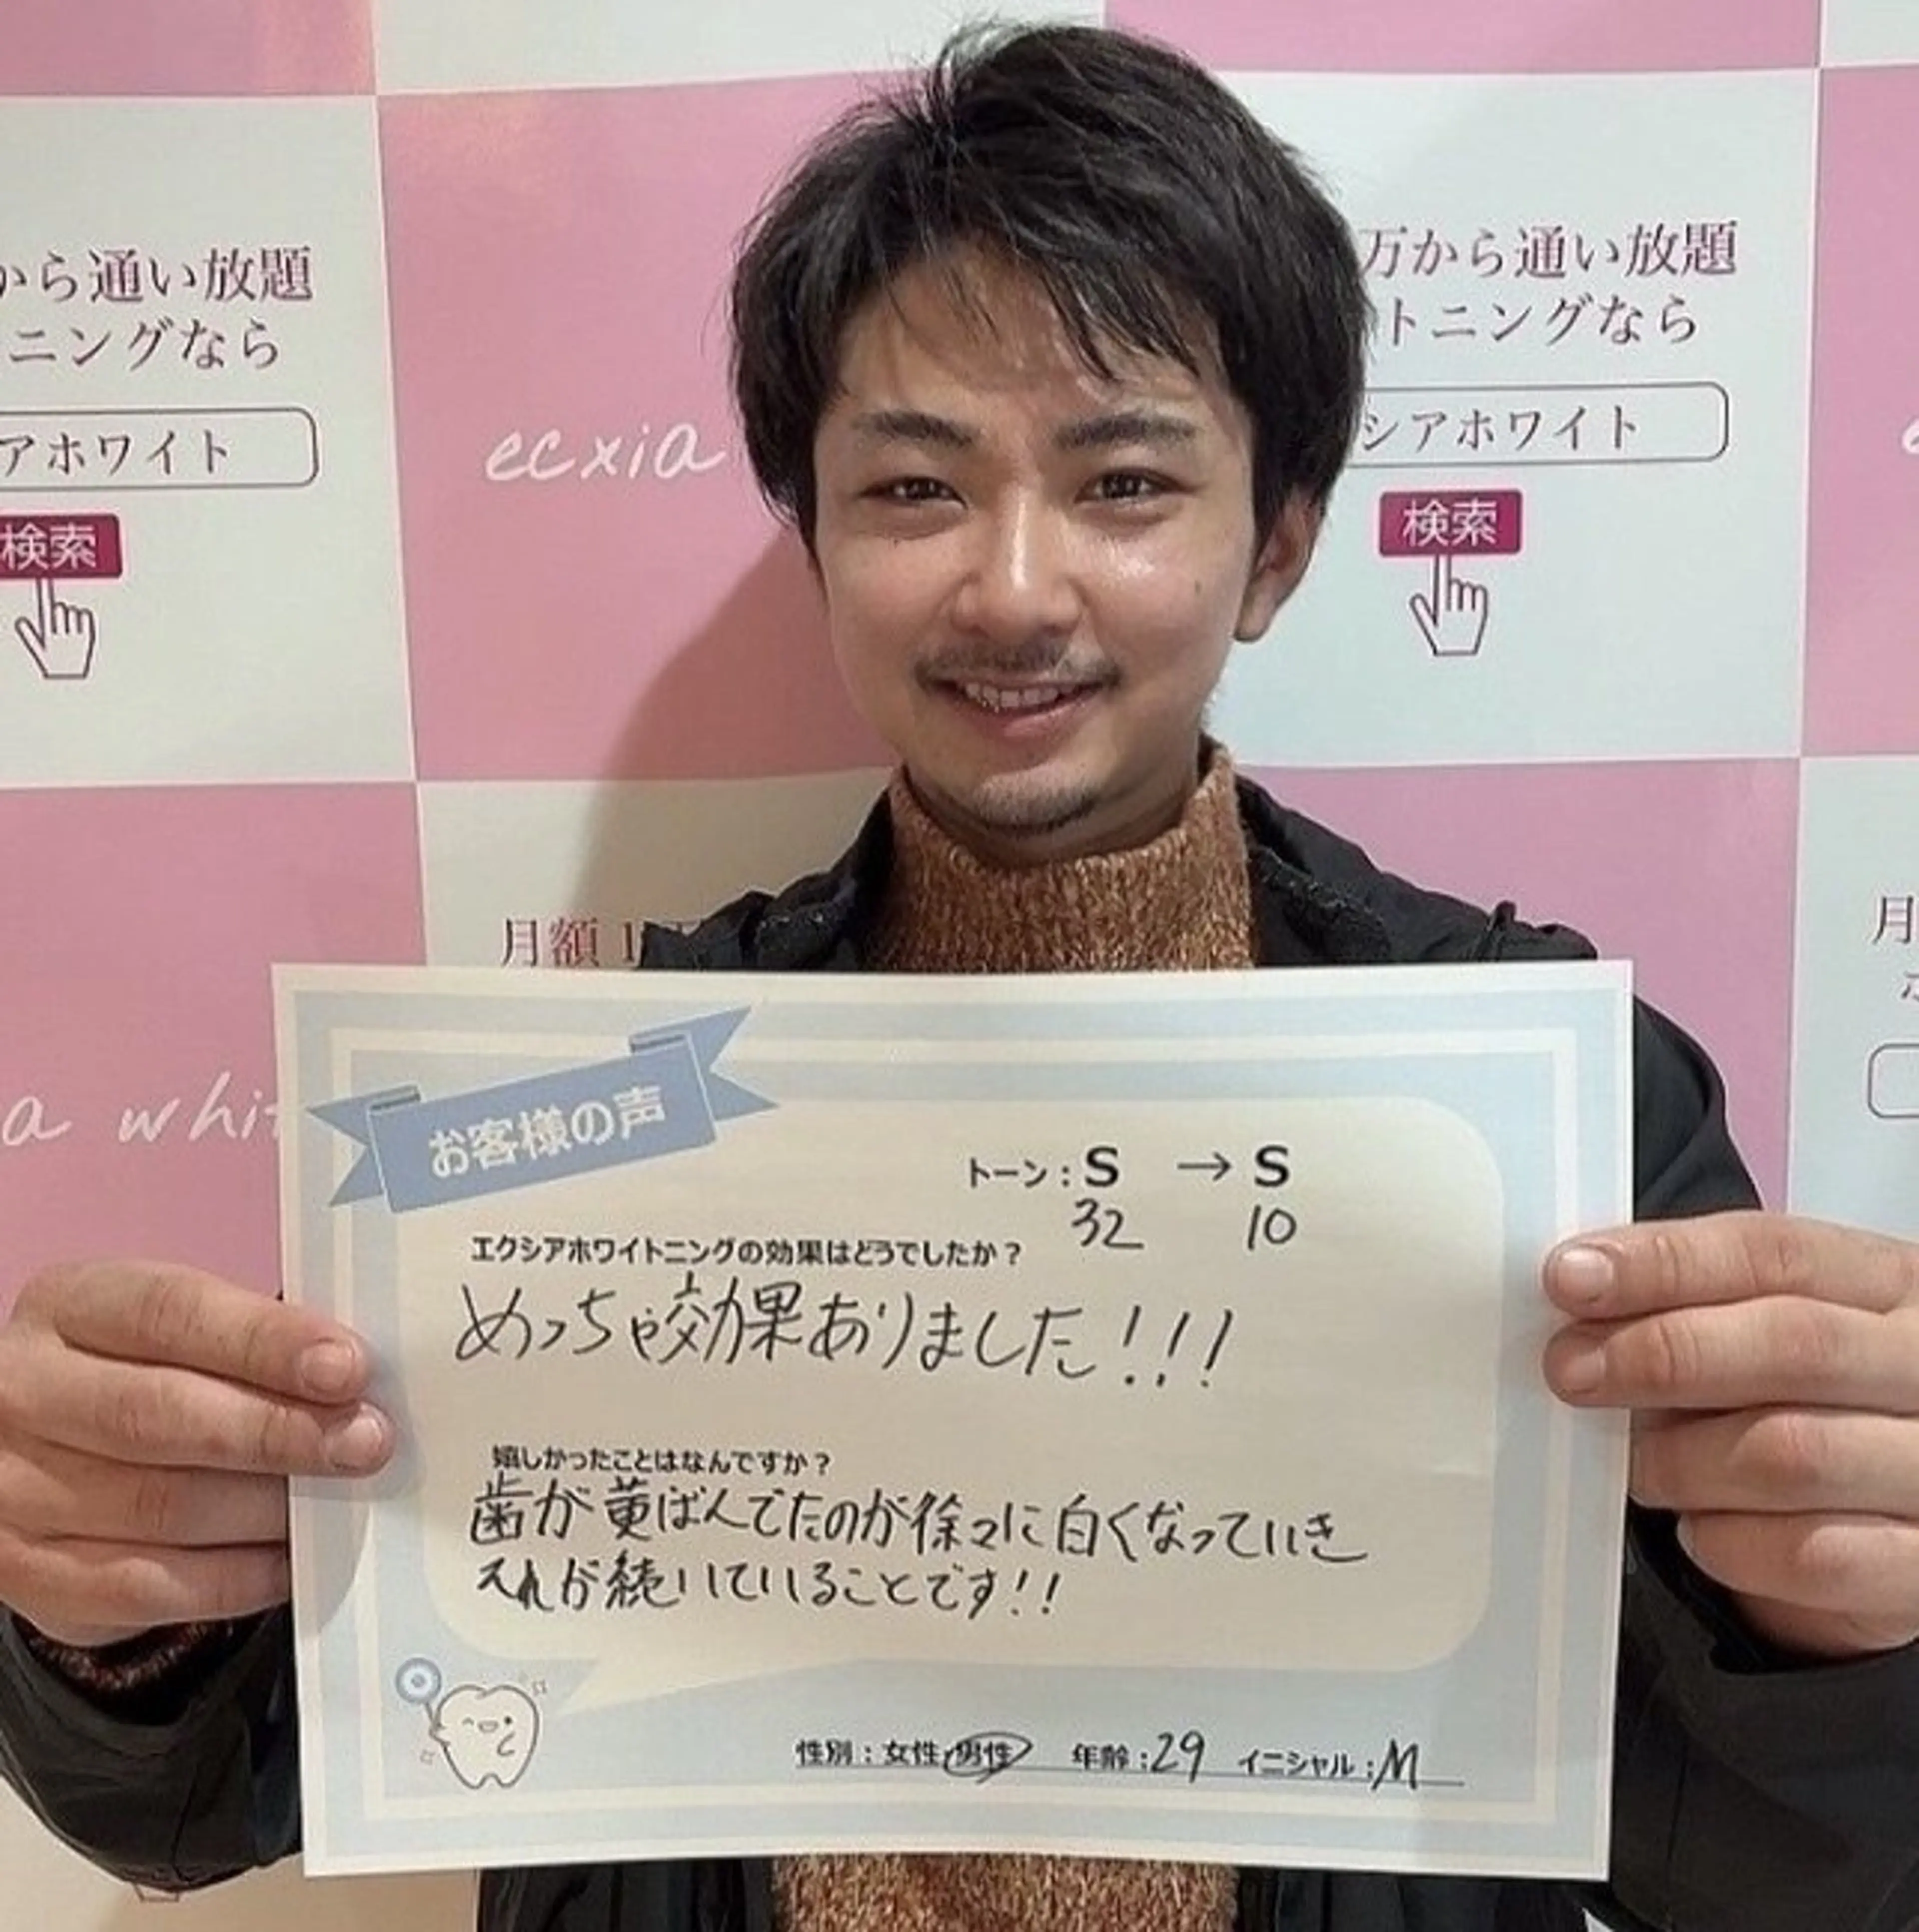 から通い放題
ニングなら
アホワイト
検索
ecxia
万から通い放題
トニングなら
シアホワイト
検索
月額1
月
a whit
お客様の声
トーン：S → S
32 10
エクシアホワイトニングの効果はどうでしたか？
めっちゃ効果ありました!!!
嬉しかったことはなんですか？
歯が黄ばんでたのが徐々に白くなっていき
それが続いていることです!!
性別：女性・男性 年齢：29 イニシャル：M